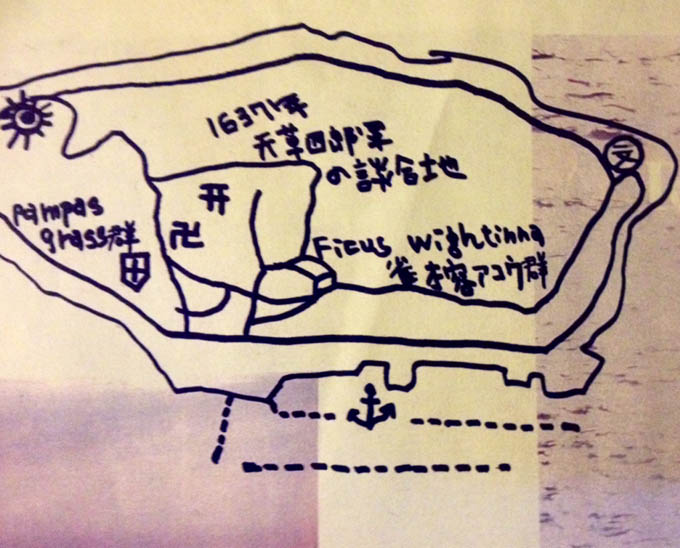 1637年
天草四郎軍
の談合地
文
卍
Pampas
grass群
Ficus wightinna
雀榕アコウ群